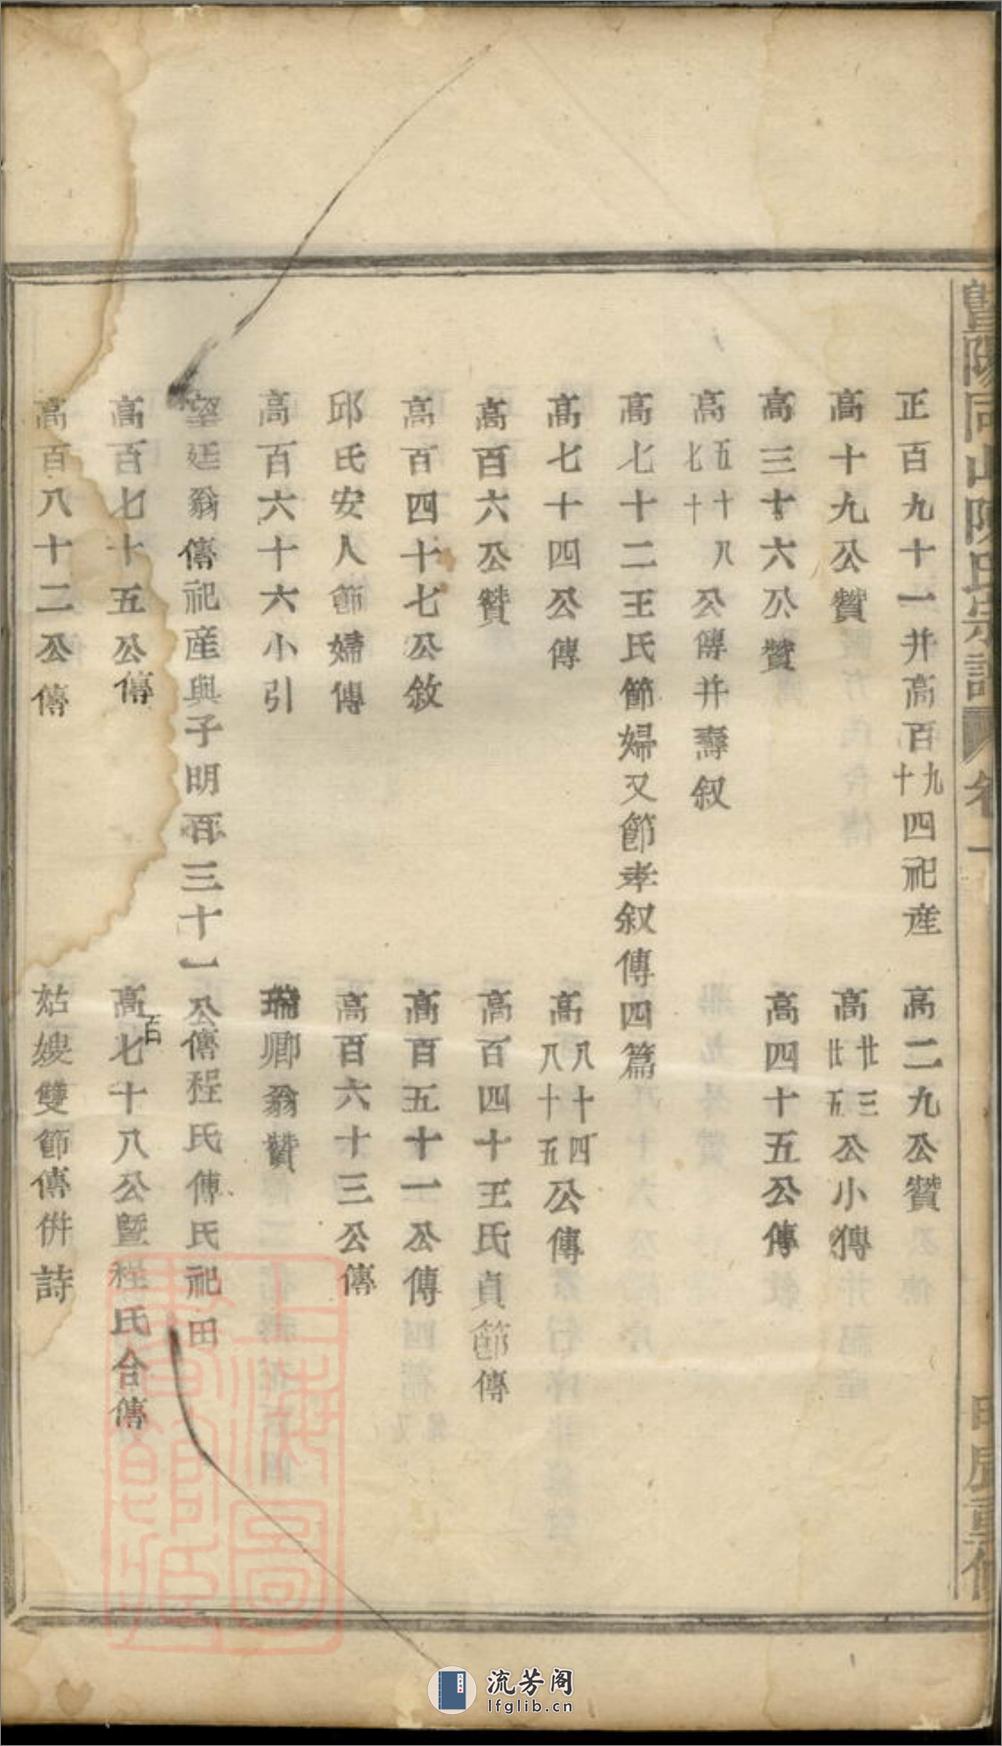 暨陽同山陳氏宗譜 卷一
正百九十一并高百九十四祀產 高二九公贊
高十九公贊 高廿三廿五公小傳
高三十六公贊 高四十五公傳
高五十八七十公傳并壽叙
高七十二王氏節婦又節孝叙傳四篇
高七十四公傳 高八十四八十五公傳
高百六公贊 高百四十王氏貞節傳
高百四十七公敘 高百五十一公傳
邱氏安人節婦傳 高百六十三公傳
高百六十六小引 瑞卿翁贊
望廷翁傳祀產與子明百三十一公傳程氏傳氏祀田
高百七十五公傳 高百七十八公暨程氏合傳
高百八十二公傳 姑嫂雙節傳併詩
上海圖書館藏
流芳阁
lfglib.cn